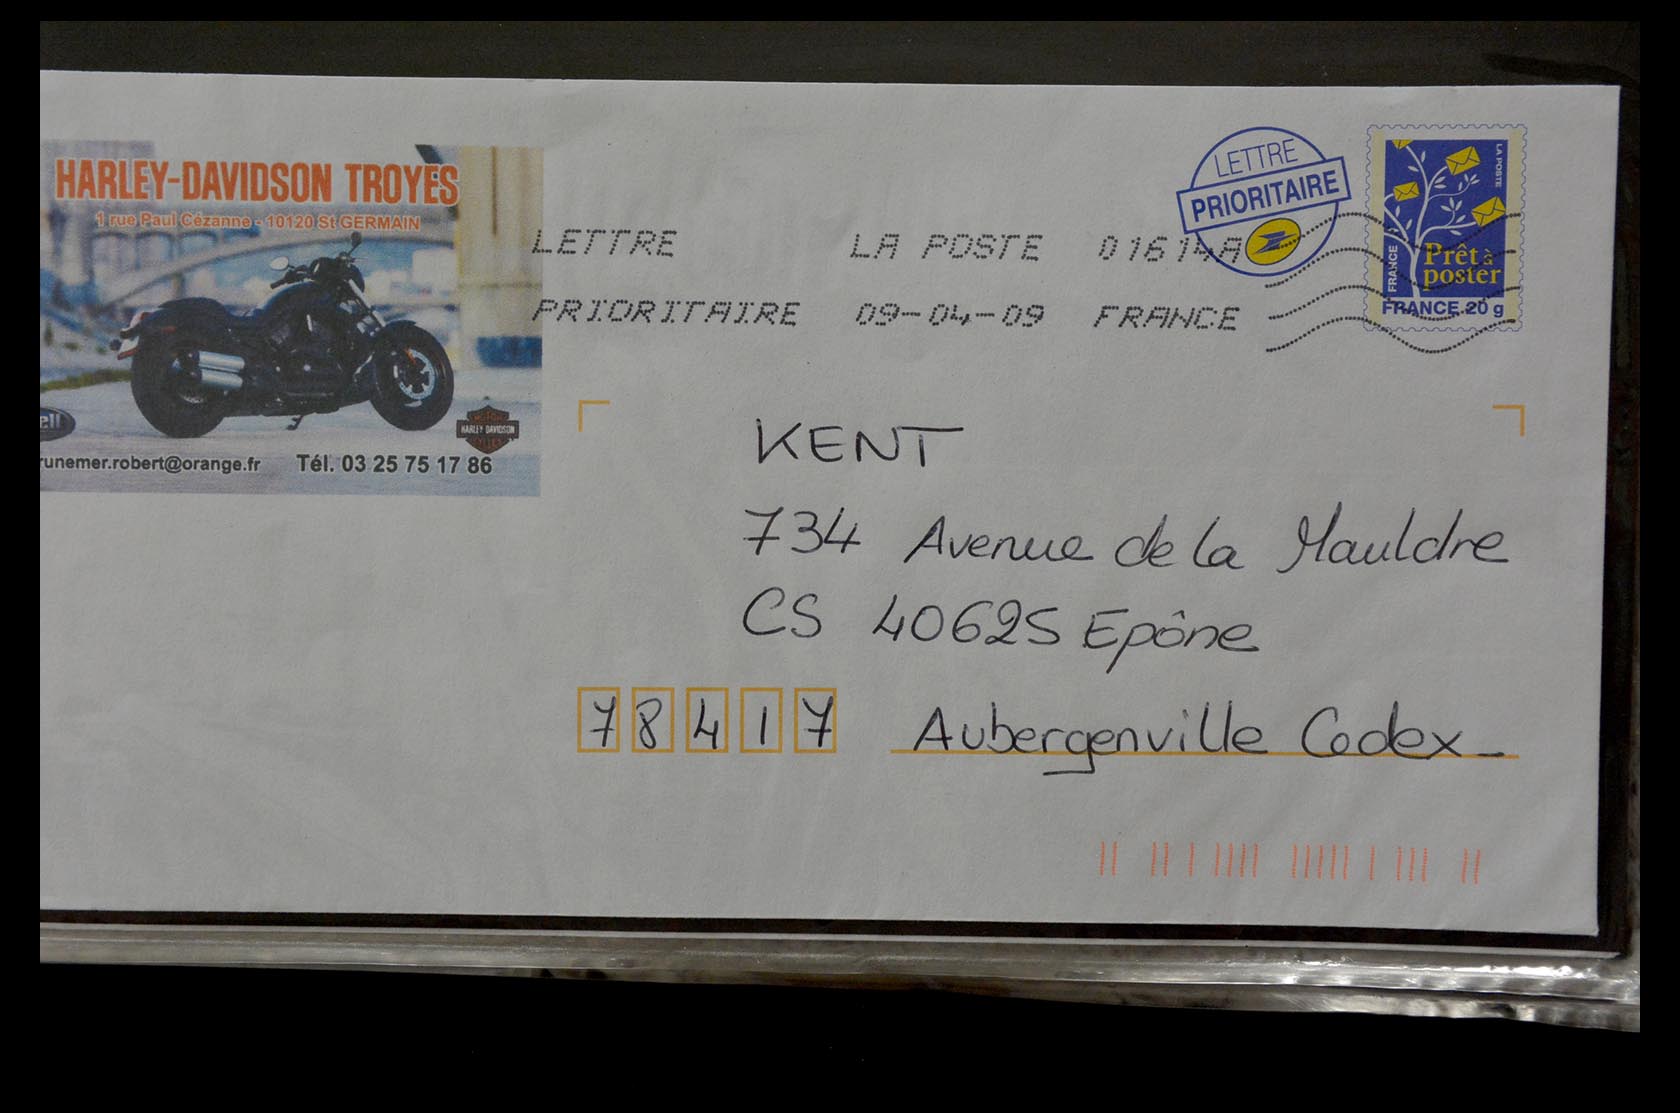 HARLEY-DAVIDSON TROYES
1 rue Paul Cézanne - 10120 St GERMAIN
ell
MOTOR
HARLEY-DAVIDSON
CYCLES
runemer.robert@orange.fr Tél. 03 25 75 17 86
LETTRE LA POSTE 01614A
PRIORITAIRE 09-04-09 FRANCE
LETTRE
PRIORITAIRE
LA POSTE
FRANCE
Prêt à
poster
FRANCE 20 g
KENT
734 Avenue de la Mauldre
CS 40625 Epône
78417 Aubergenville Cedex